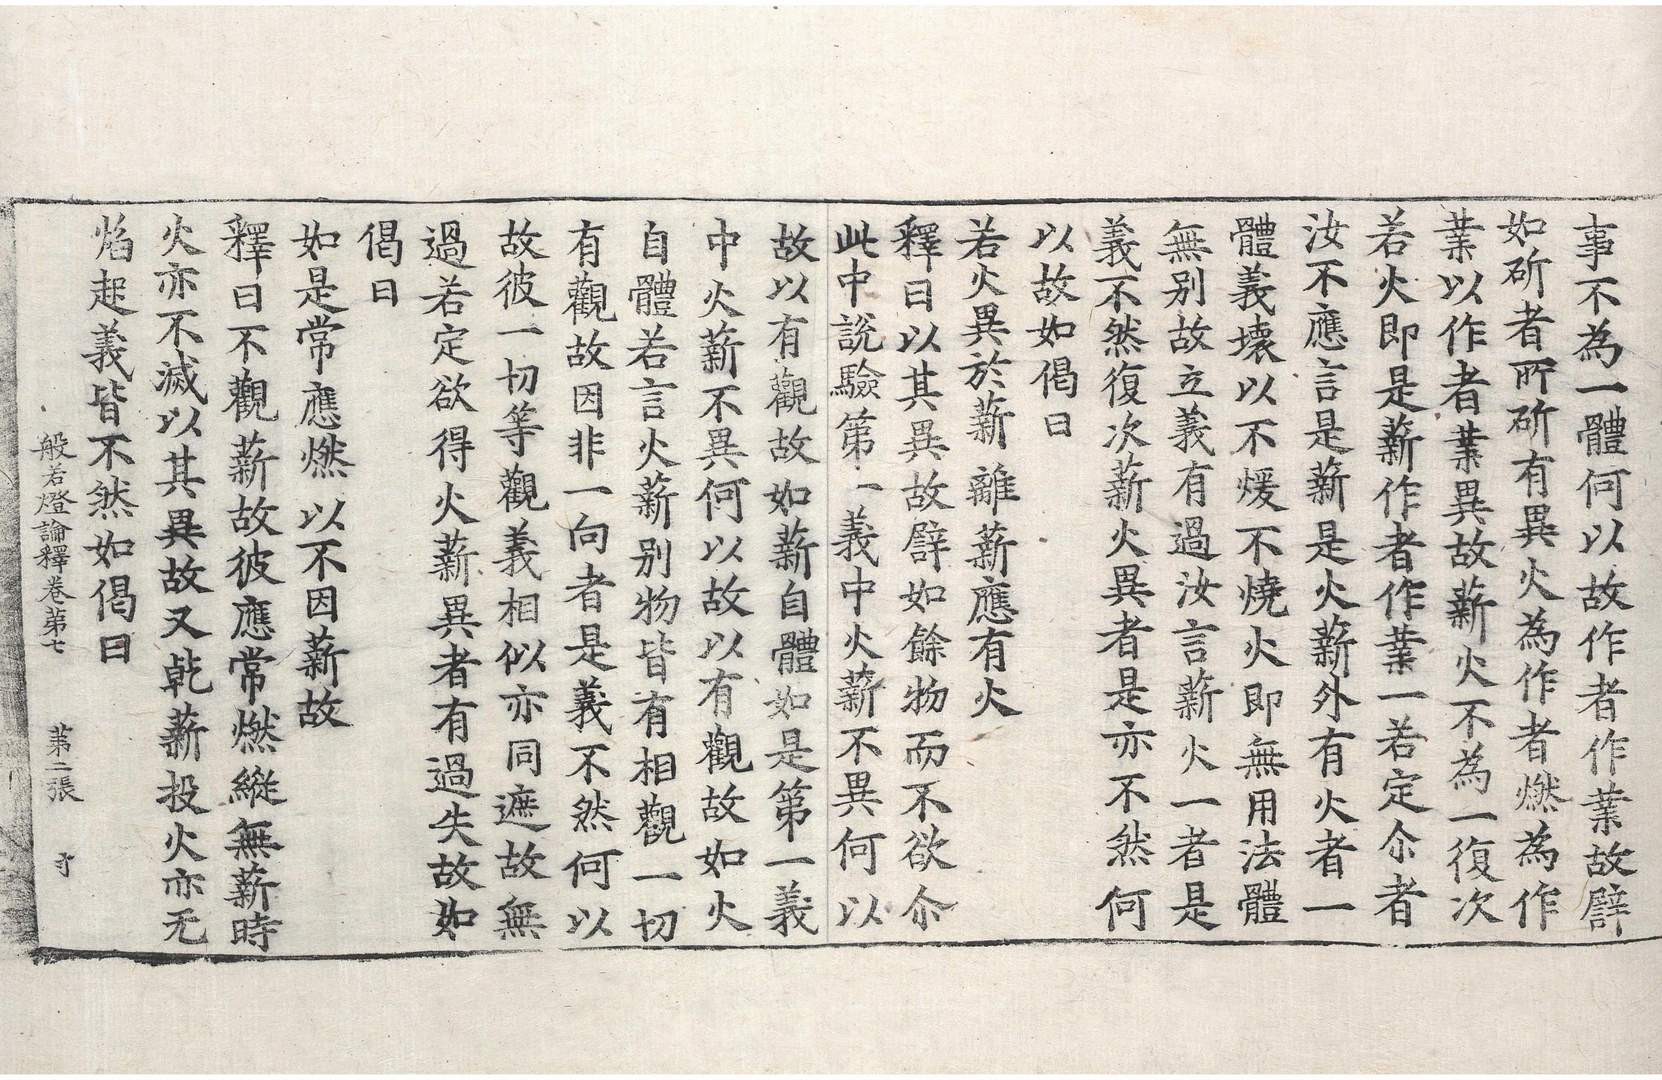 事不為一體何以故作者作業故譬
如斫者所斫有異火為作者燃為作
業以作者業異故薪火不為一復次
若火即是薪作者作業一若定尒者
汝不應言是薪是火薪外有火者一
體義壞以不煖不燒火即無用法體
無別故立義有過汝言薪火一者是
義不然復次薪火異者是亦不然何
以故如偈曰
若火異於薪離薪應有火
釋曰以其異故譬如餘物而不欲尒
此中說驗第一義中火薪不異何以
故以有觀故如薪自體如是第一義
中火薪不異何以故以有觀故如火
自體若言火薪別物皆有相觀一切
有觀故因非一向者是義不然何以
故彼一切等觀義相似亦同遮故無
過若定欲得火薪異者有過失故如
偈曰
如是常應燃以不因薪故
釋曰不觀薪故彼應常燃縱無薪時
火亦不滅以其異故又乾薪投火亦无
焰起義皆不然如偈曰
般若燈論釋卷第七 第二張 寸